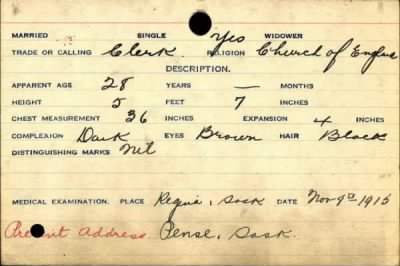 MARRIED SINGLE Yes WIDOWER
TRADE OR CALLING Clerk. RELIGION Church of England
DESCRIPTION.
APPARENT AGE 28 YEARS — MONTHS
HEIGHT 5 FEET 7 INCHES
CHEST MEASUREMENT 36 INCHES EXPANSION 4 INCHES
COMPLEXION Dark EYES Brown HAIR Black
DISTINGUISHING MARKS Nil
MEDICAL EXAMINATION. PLACE Regina, Sask DATE Nov 9th 1915
Present address. Pense, Sask.